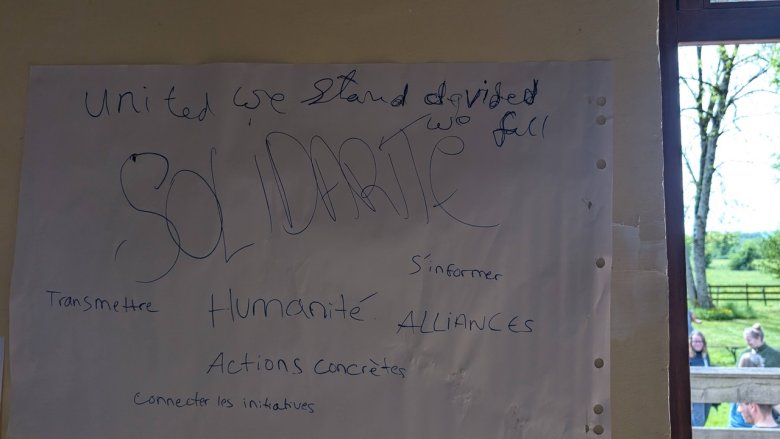 united we stand divided
we fall
SOLIDARITE
S'informer
Transmettre
Humanité
ALLIANCES
Actions concrètes
Connecter les initiatives